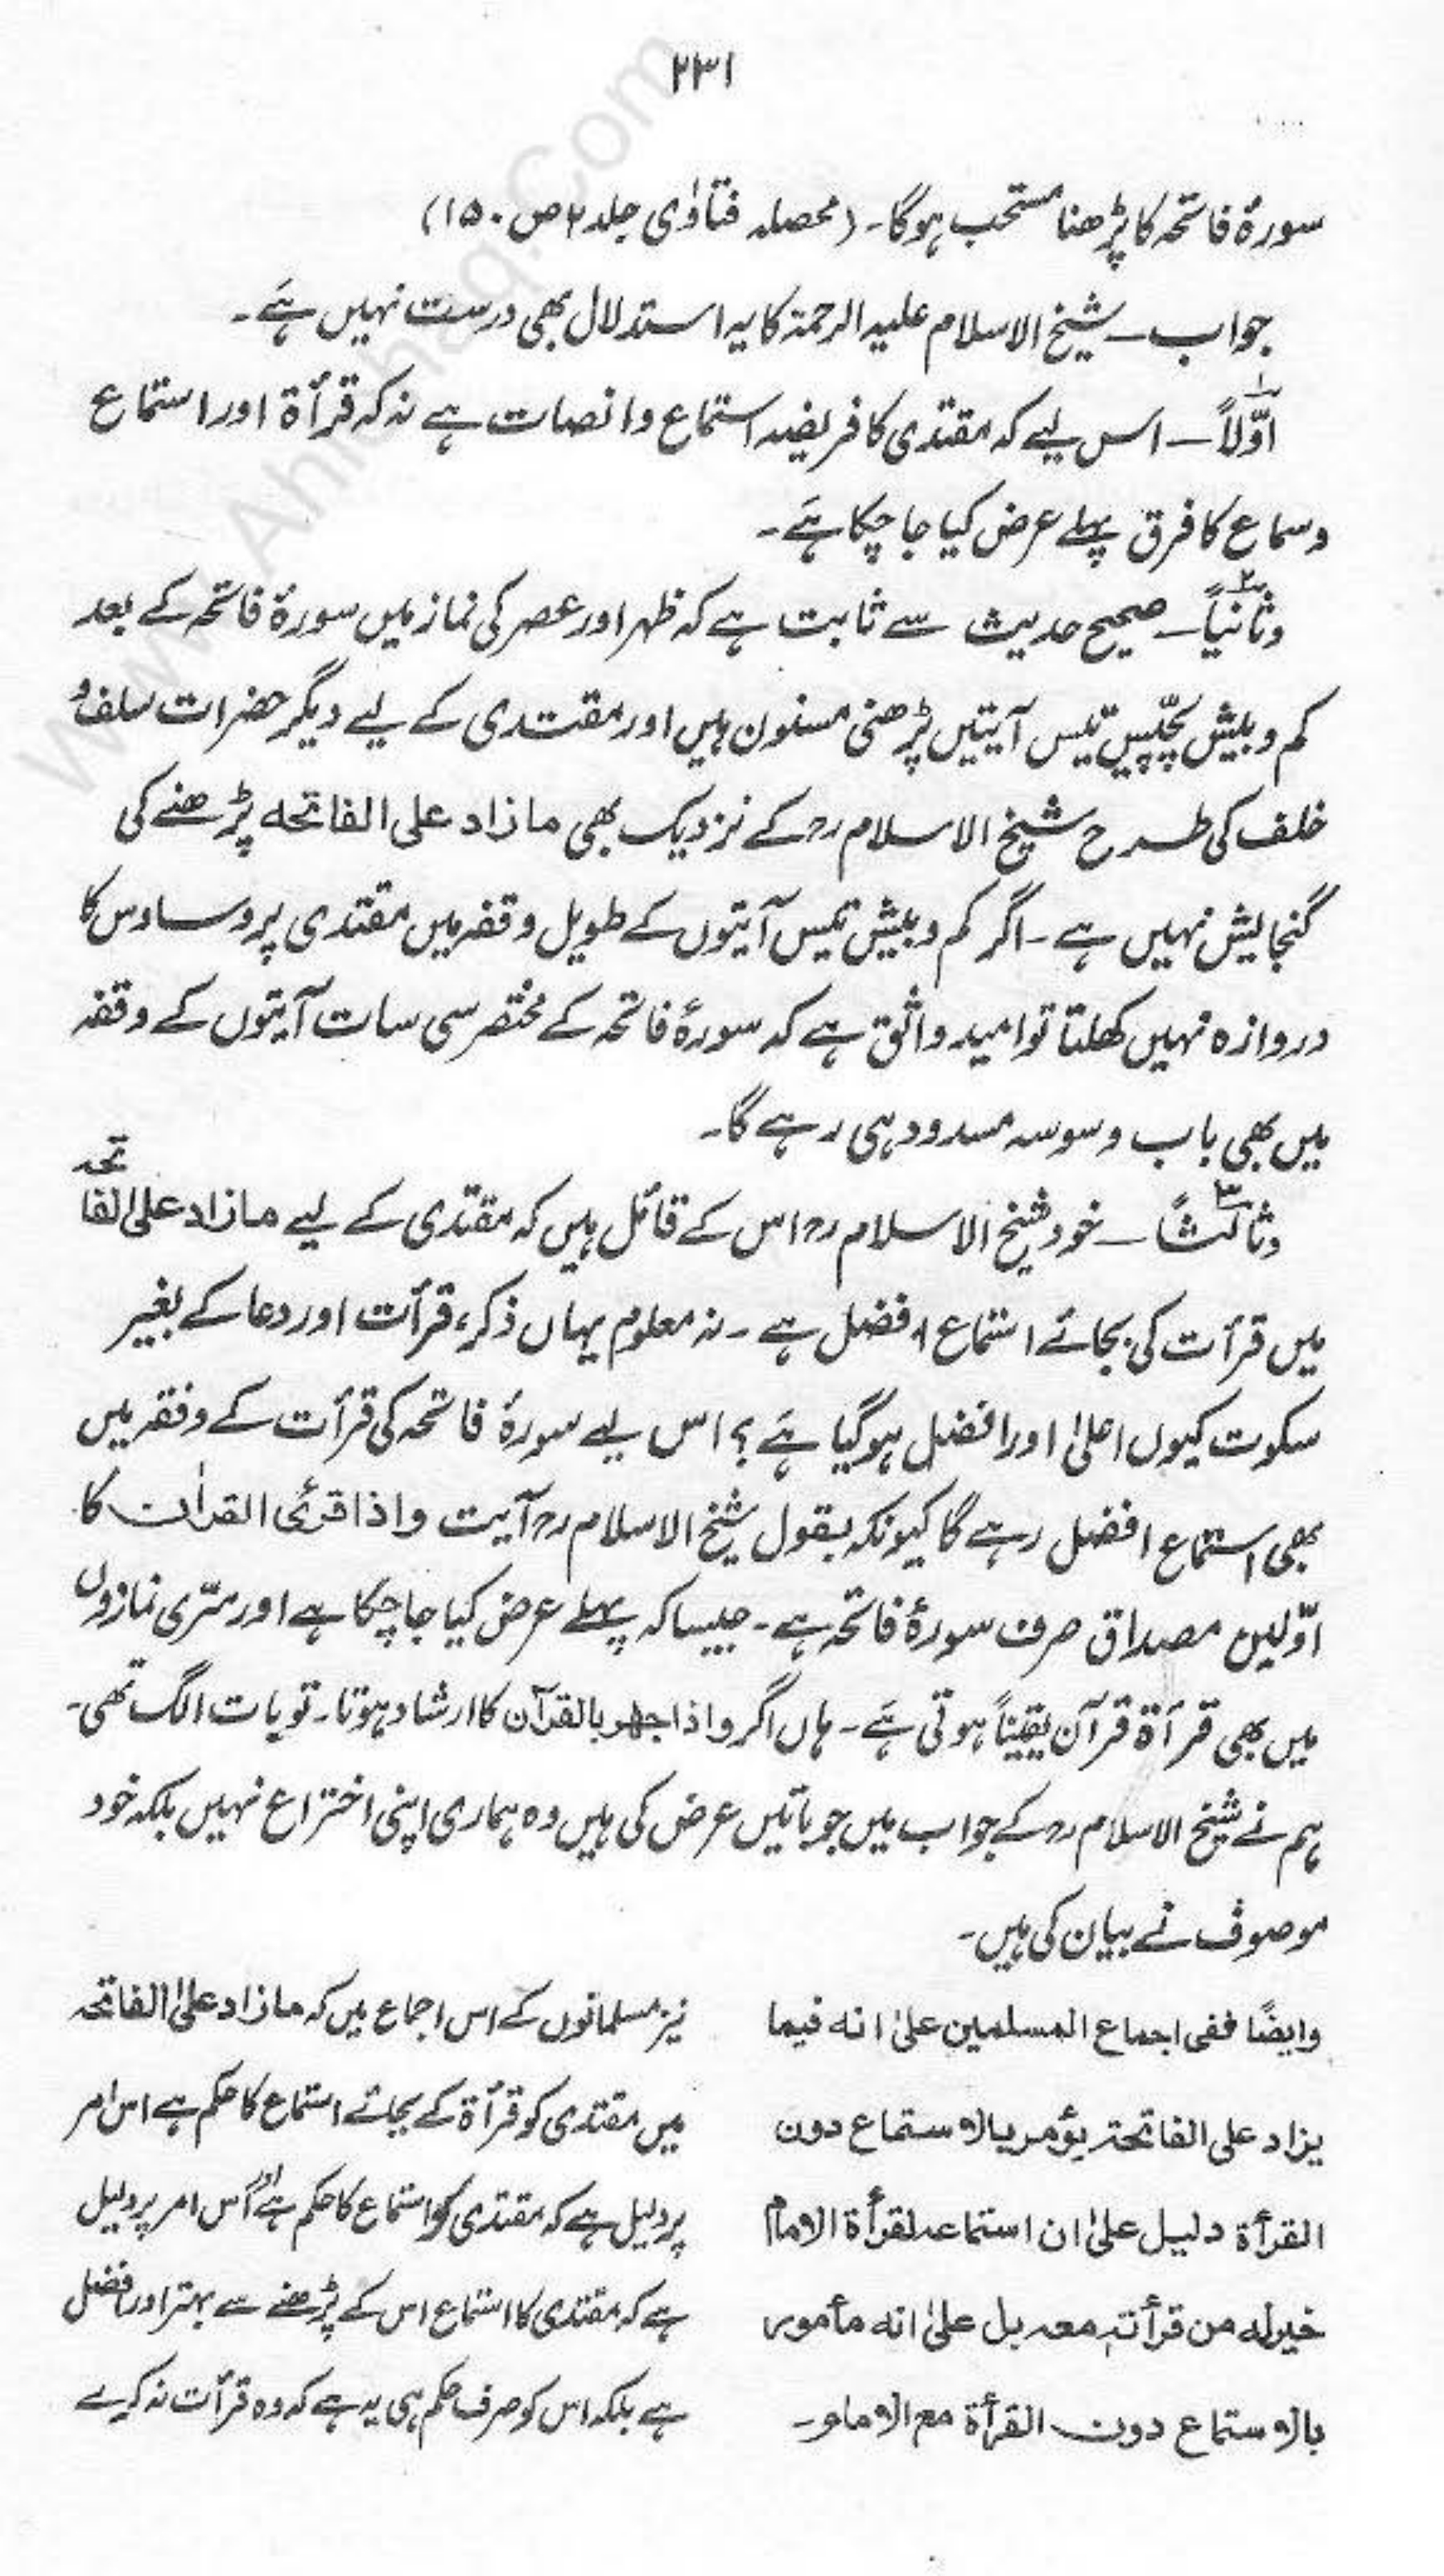 ۲۳۱
سورۂ فاتحہ کا پڑھنا مستحب ہوگا۔ (محصلہ فتاوٰی جلد ۲ ص ۱۵۰)
جواب ۔ شیخ الاسلام علیہ الرحمۃ کا یہ استدلال بھی درست نہیں ہے۔
اوّلاً ۔ اس لیے کہ مقتدی کا فریضہ استماع وانصات ہے نہ کہ قرأۃ اور استماع
وسماع کا فرق پہلے عرض کیا جا چکا ہے۔
وثانیاً ۔ صحیح حدیث سے ثابت ہے کہ ظہر اور عصر کی نماز میں سورۂ فاتحہ کے بعد
کم و بیش پچیس تیس آیتیں پڑھنی مسنون ہیں اور مقتدی کے لیے دیگر حضرات سلف و
خلف کی طرح شیخ الاسلام رح کے نزدیک بھی مازاد علی الفاتحہ پڑھنے کی
گنجایش نہیں ہے۔ اگر کم و بیش تیس آیتوں کے طویل وقفہ میں مقتدی پر وساوس کا
دروازہ نہیں کھلتا تو امید واثق ہے کہ سورۂ فاتحہ کے مختصر سی سات آیتوں کے وقفہ
میں بھی باب وسوسہ مسدود ہی رہے گا۔
وثالثاً ۔ خود شیخ الاسلام رح اس کے قائل ہیں کہ مقتدی کے لیے مازاد علی الفاتحہ
میں قرأت کی بجائے استماع افضل ہے ۔ نہ معلوم یہاں ذکر، قرأت اور دعا کے بغیر
سکوت کیوں اعلیٰ اور افضل ہوگیا ہے؟ اس لیے سورۂ فاتحہ کی قرأت کے وقفہ میں
بھی استماع افضل رہے گا کیونکہ بقول شیخ الاسلام رح آیت واذا قرئ القراٰن کا
اوّلین مصداق صرف سورۂ فاتحہ ہے۔ جیسا کہ پہلے عرض کیا جا چکا ہے اور سرّی نمازوں
میں بھی قرأۃ قرآن یقیناً ہوتی ہے۔ ہاں اگر واذا جھر بالقرآن کا ارشاد ہوتا۔ تو بات الگ تھی۔
ہم نے شیخ الاسلام رح کے جواب میں جو باتیں عرض کی ہیں وہ ہماری اپنی اختراع نہیں بلکہ خود
موصوف نے بیان کی ہیں۔
وایضًا ففی اجماع المسلمین علیٰ انه فیما
یزاد علی الفاتحة یؤمر بالاستماع دون
القرأة دلیل علیٰ ان استماعه لقرأة الامام
خیر له من قرأته معه بل علیٰ انه مأمور
بالاستماع دون القرأة مع الامام۔
نیز مسلمانوں کے اس اجماع میں کہ مازاد علیٰ الفاتحہ
میں مقتدی کو قرأۃ کے بجائے استماع کا حکم ہے اس امر
پر دلیل ہے کہ مقتدی کو استماع کا حکم ہے اور اس امر پر دلیل
ہے کہ مقتدی کا استماع اس کے پڑھنے سے بہتر اور افضل
ہے بلکہ اس کو صرف حکم ہی یہ ہے کہ وہ قرأت نہ کرے